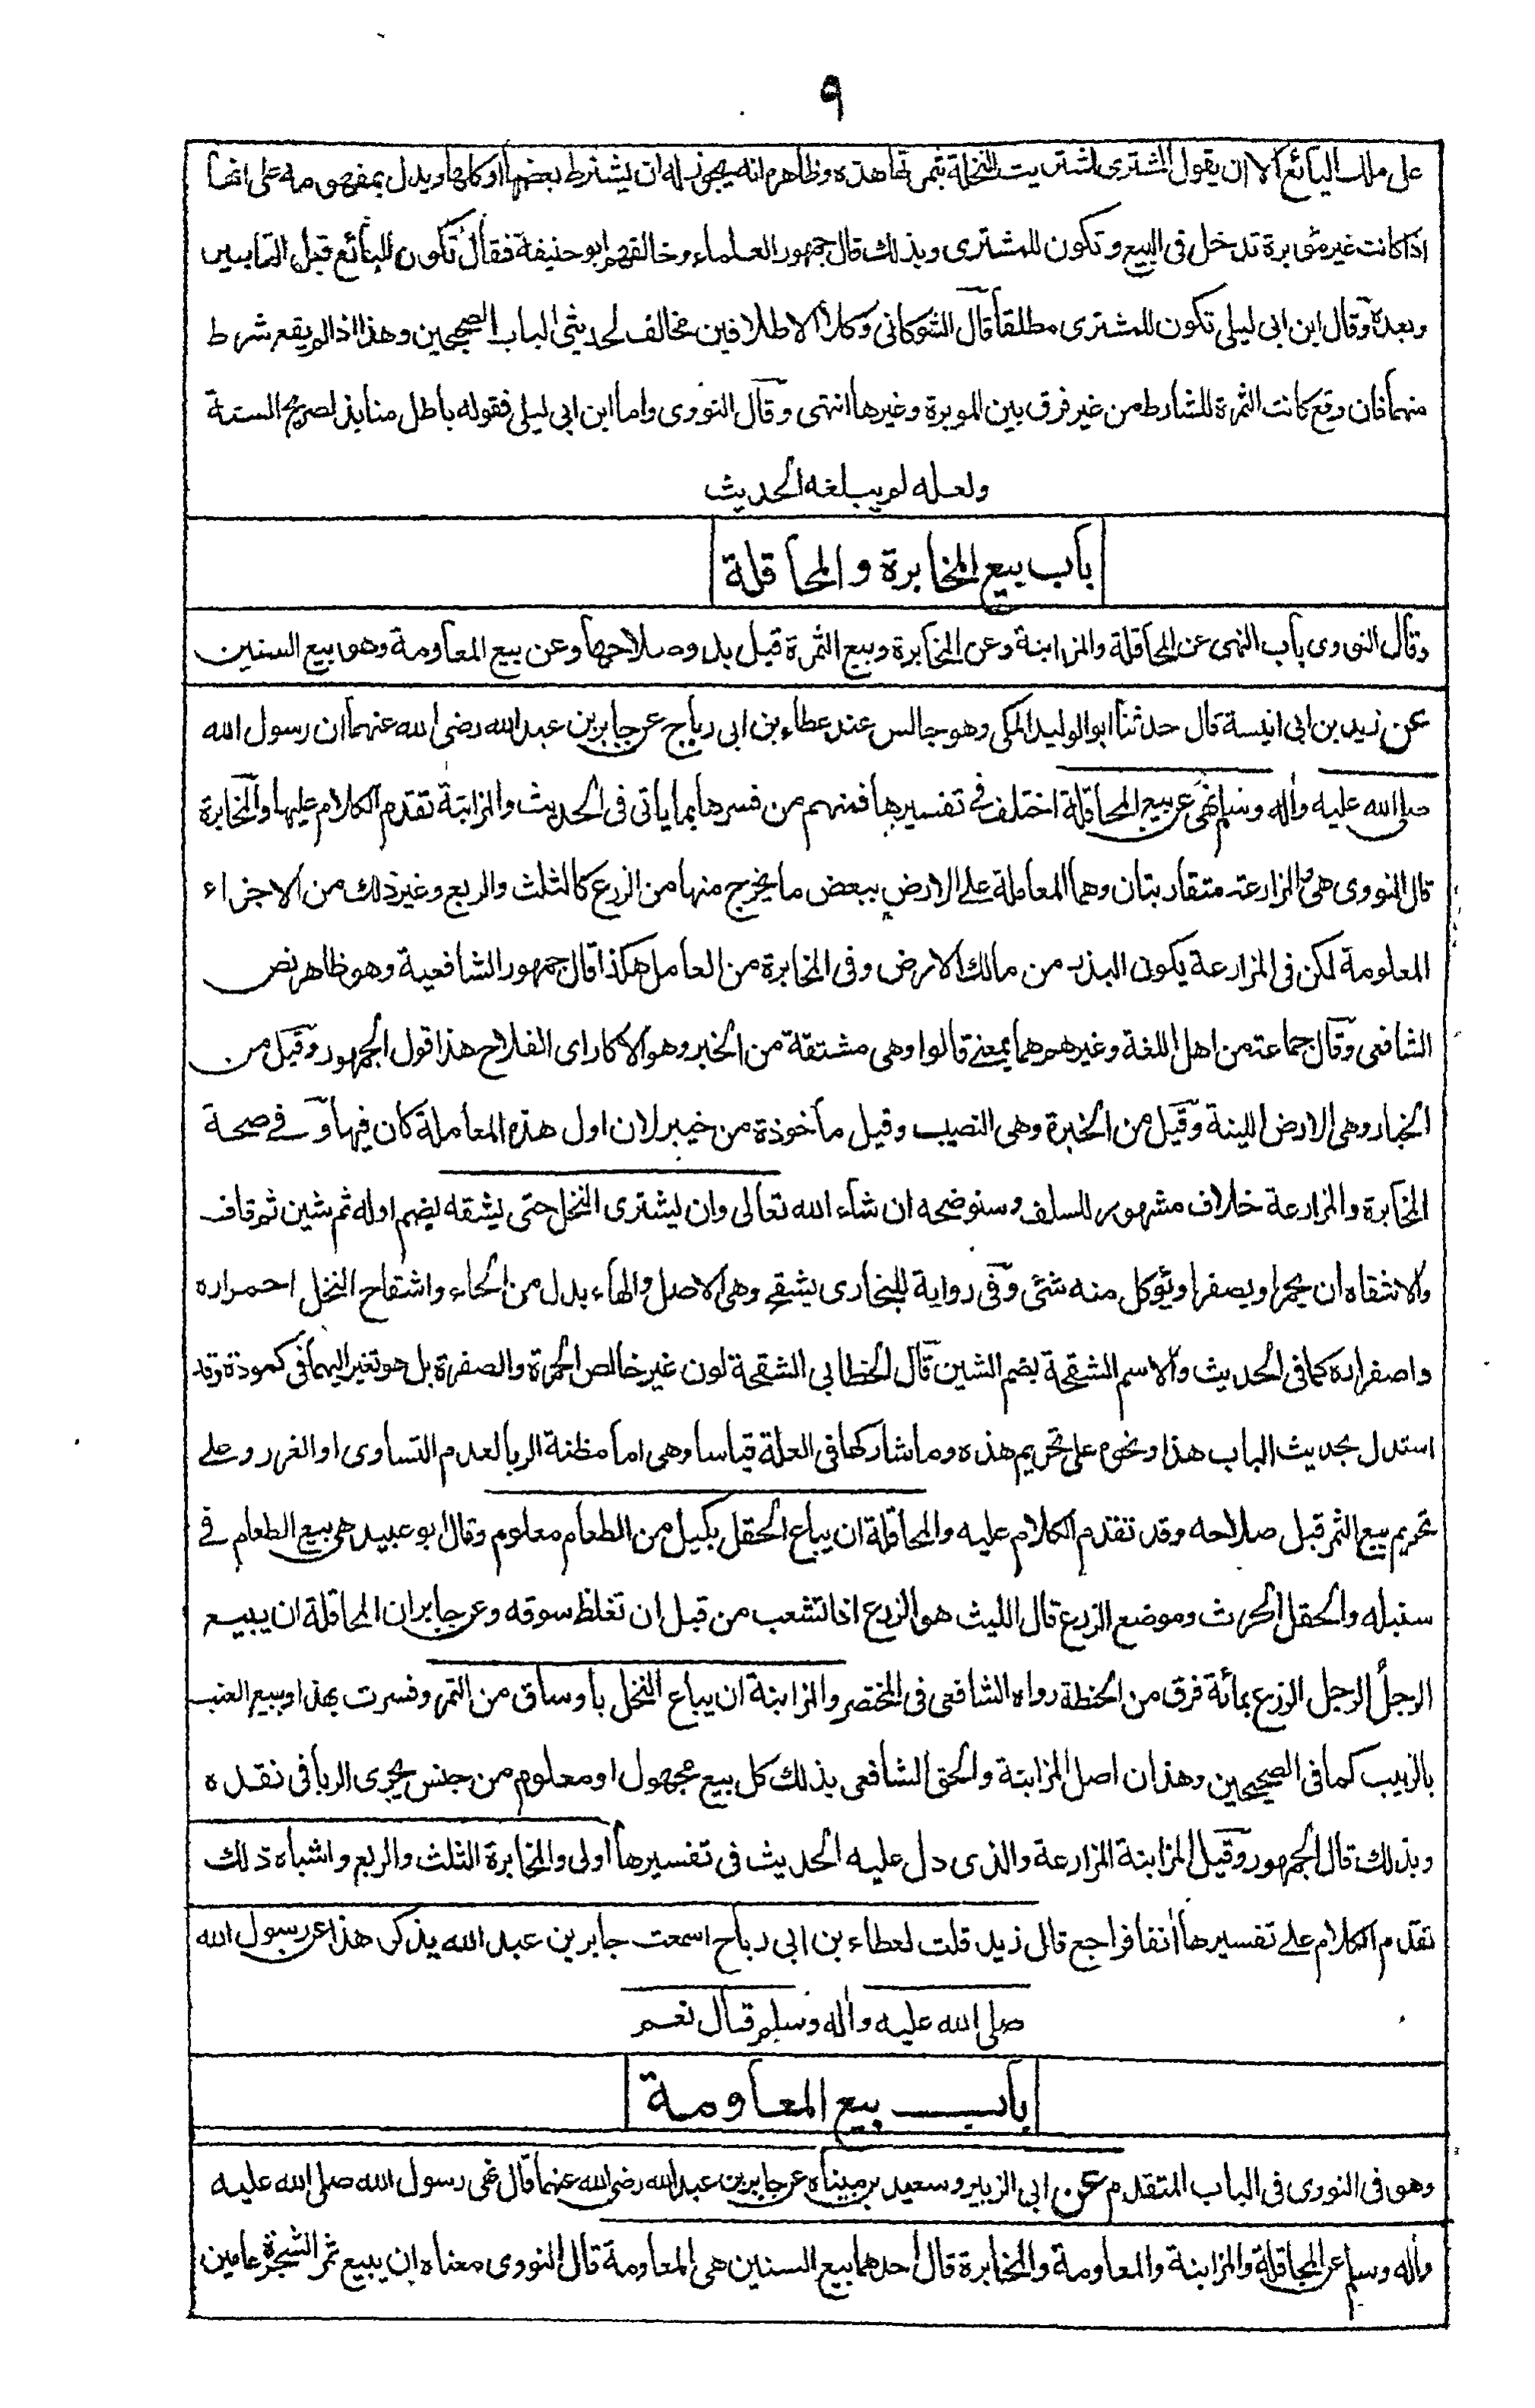 ٩
على ملك البائع الا ان يقول المشترى اشتريت النخلة بثمرتها هذه وظاهره انه يجوز له ان يشترط بعضها او كلها ويدل بمفهومه على انها
اذا كانت غير مؤبرة تدخل فى البيع وتكون للمشترى وبذلك قال جمهور العلماء وخالفهم ابو حنيفة فقال تكون للبائع قبل التابير
وبعده وقال ابن ابى ليلى تكون للمشترى مطلقا قال الشوكانى وكلا الاطلاقين مخالف لحديثى الباب الصحيحين وهذا اذا لم يقع شرط
منهما فان وقع كانت الثمرة للشارط من غير فرق بين الموبرة وغيرها انتهى وقال النووى واما ابن ابى ليلى فقوله باطل منابذ لصريح السنة
ولعله لم يبلغه الحديث
باب بيع المخابرة والمحاقلة
وقال النووى باب النهى عن المحاقلة والمزابنة وعن المخابرة وبيع الثمرة قبل بدو صلاحها وعن بيع المعاومة وهو بيع السنين
عن زيد بن ابى انيسة قال حدثنا ابو الوليد المكى وهو جالس عند عطاء بن ابى رباح عن جابر بن عبد الله رضى الله عنهما ان رسول الله
صلى الله عليه واله وسلم نهى عن بيع المحاقلة اختلف فى تفسيرها فمنهم من فسرها بما ياتى فى الحديث والمزابنة تقدم الكلام عليها والمخابرة
قال النووى هى والمزارعة متقاربتان وهما المعاملة على الارض ببعض ما يخرج منها من الزرع كالثلث والربع وغير ذلك من الاجزاء
المعلومة لكن فى المزارعة يكون البذر من مالك الارض وفى المخابرة من العامل هكذا قال جمهور الشافعية وهو ظاهر نص
الشافعى وقال جماعة من اهل اللغة وغيرهم هما بمعنى قالوا وهى مشتقة من الخبر وهو الاكار اى الفلاح هذا قول الجمهور وقيل من
الخبار وهى الارض اللينة وقيل من الخبرة وهى النصيب وقيل ماخوذة من خيبر لان اول هذه المعاملة كان فيها وفى صحة
المخابرة والمزارعة خلاف مشهور للسلف وسنوضحه ان شاء الله تعالى وان يشترى النخل حتى يشقه بضم اوله ثم شين ثم قاف
والاشقاه ان يحمر او يصفر او يؤكل منه شئ وفى رواية للبخارى يشقح وهى الاصل والهاء بدل من الحاء واشقاح النخل احمراره
واصفراره كما فى الحديث والاسم الشقحة بضم الشين قال الخطابى الشقحة لون غير خالص الحمرة والصفرة بل هو تغير اليهما فى كمودة وقد
استدل بحديث الباب هذا ونحوه على تحريم هذه وما شاركها فى العلة قياسا وهى اما مظنة الربا لعدم التساوى او الغرر وعلى
تحريم بيع الثمر قبل صلاحه وقد تقدم الكلام عليه والمحاقلة ان يباع الحقل بكيل من الطعام معلوم وقال ابو عبيد هى بيع الطعام فى
سنبله والحقل الحرث وموضع الزرع قال الليث هو الزرع اذا تشعب من قبل ان تغلظ سوقه وعن جابر ان المحاقلة ان يبيع
الرجل الرجل الزرع بمائة فرق من الحنطة رواه الشافعى فى المختصر والمزابنة ان يباع النخل باوساق من التمر وفسرت بهذا وبيع العنب
بالزبيب كما فى الصحيحين وهذان اصل المزابنة والحق الشافعى بذلك كل بيع مجهول او معلوم من جنس يجرى الربا فى نقده
وبذلك قال الجمهور وقيل المزابنة المزارعة والذى دل عليه الحديث فى تفسيرها اولى والمخابرة الثلث والربع واشباه ذلك
تقدم الكلام على تفسيرها انفا فراجع قال زيد قلت لعطاء بن ابى رباح اسمعت جابر بن عبد الله يذكر هذا عن رسول الله
صلى الله عليه واله وسلم قال نعم
باب بيع المعاومة
وهو فى النووى فى الباب المتقدم عن ابى الزبير وسعيد بن ميناء عن جابر بن عبد الله رضى الله عنهما قال نهى رسول الله صلى الله عليه
واله وسلم عن المحاقلة والمزابنة والمعاومة والمخابرة قال احدهما بيع السنين هى المعاومة قال النووى معناه ان يبيع ثمر الشجرة عامين